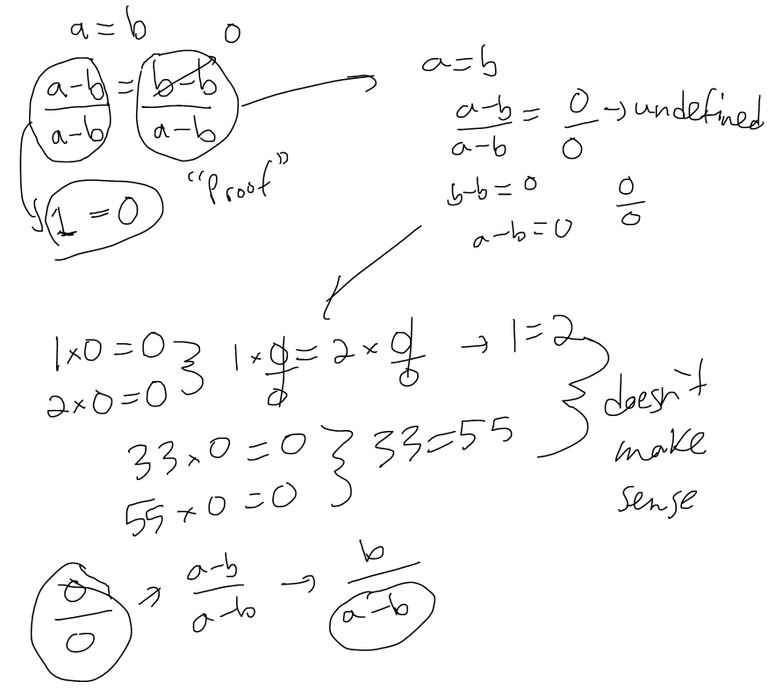 a = b
0
a-b/a-b = b-b/a-b
1 = 0
"Proof"
a = b
a-b/a-b = 0/0 → undefined
b-b = 0
0/0
a-b = 0
1×0 = 0
2×0 = 0
} 1 × 0/0 = 2 × 0/0 → 1 = 2
33×0 = 0
55×0 = 0
} 33=55
} doesn't
make
sense
0/0 → a-b/a-b → b/a-b